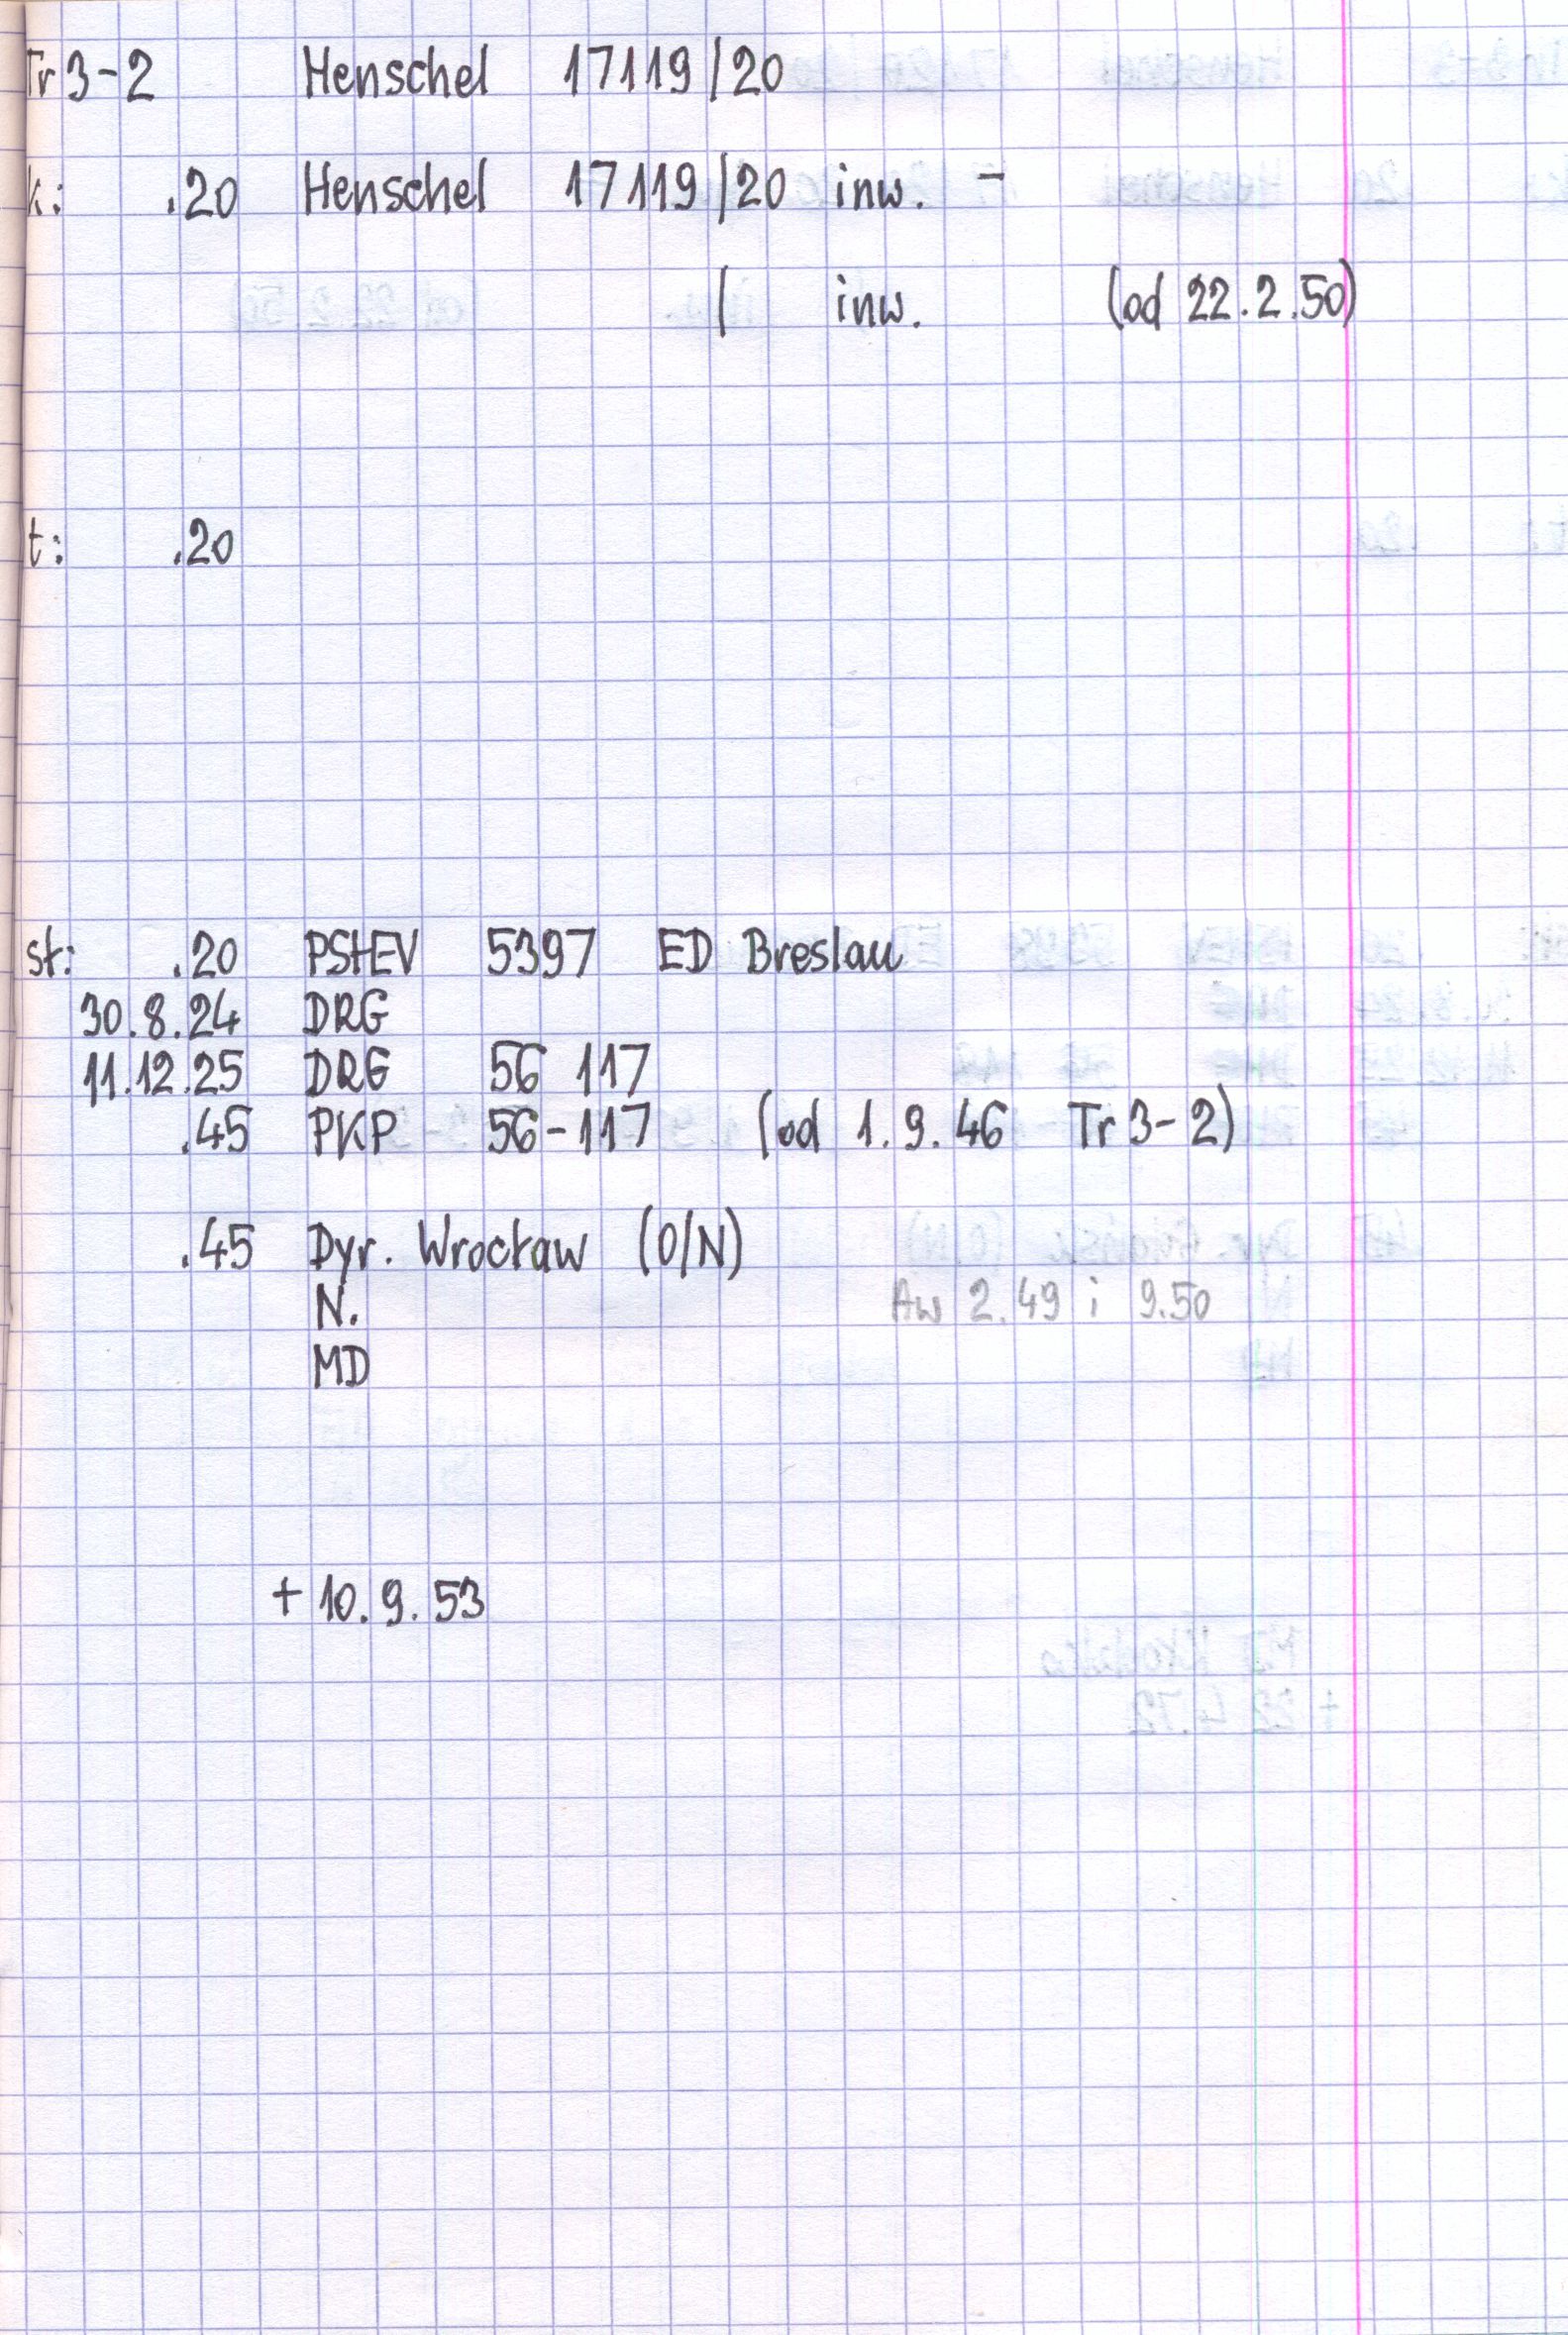 Tr 3-2 Henschel 17119/20
k: .20 Henschel 17119/20 inw. -
/ inw. (od 22.2.50)
t: .20
st: .20 PStEV 5397 ED Breslau
30.8.24 DRG
11.12.25 DRG 56 117
.45 PKP 56-117 (od 1.9.46 Tr 3-2)
.45 Dyr. Wrocław (O/N)
N. Aw 2.49 i 9.50
MD
+ 10.9.53